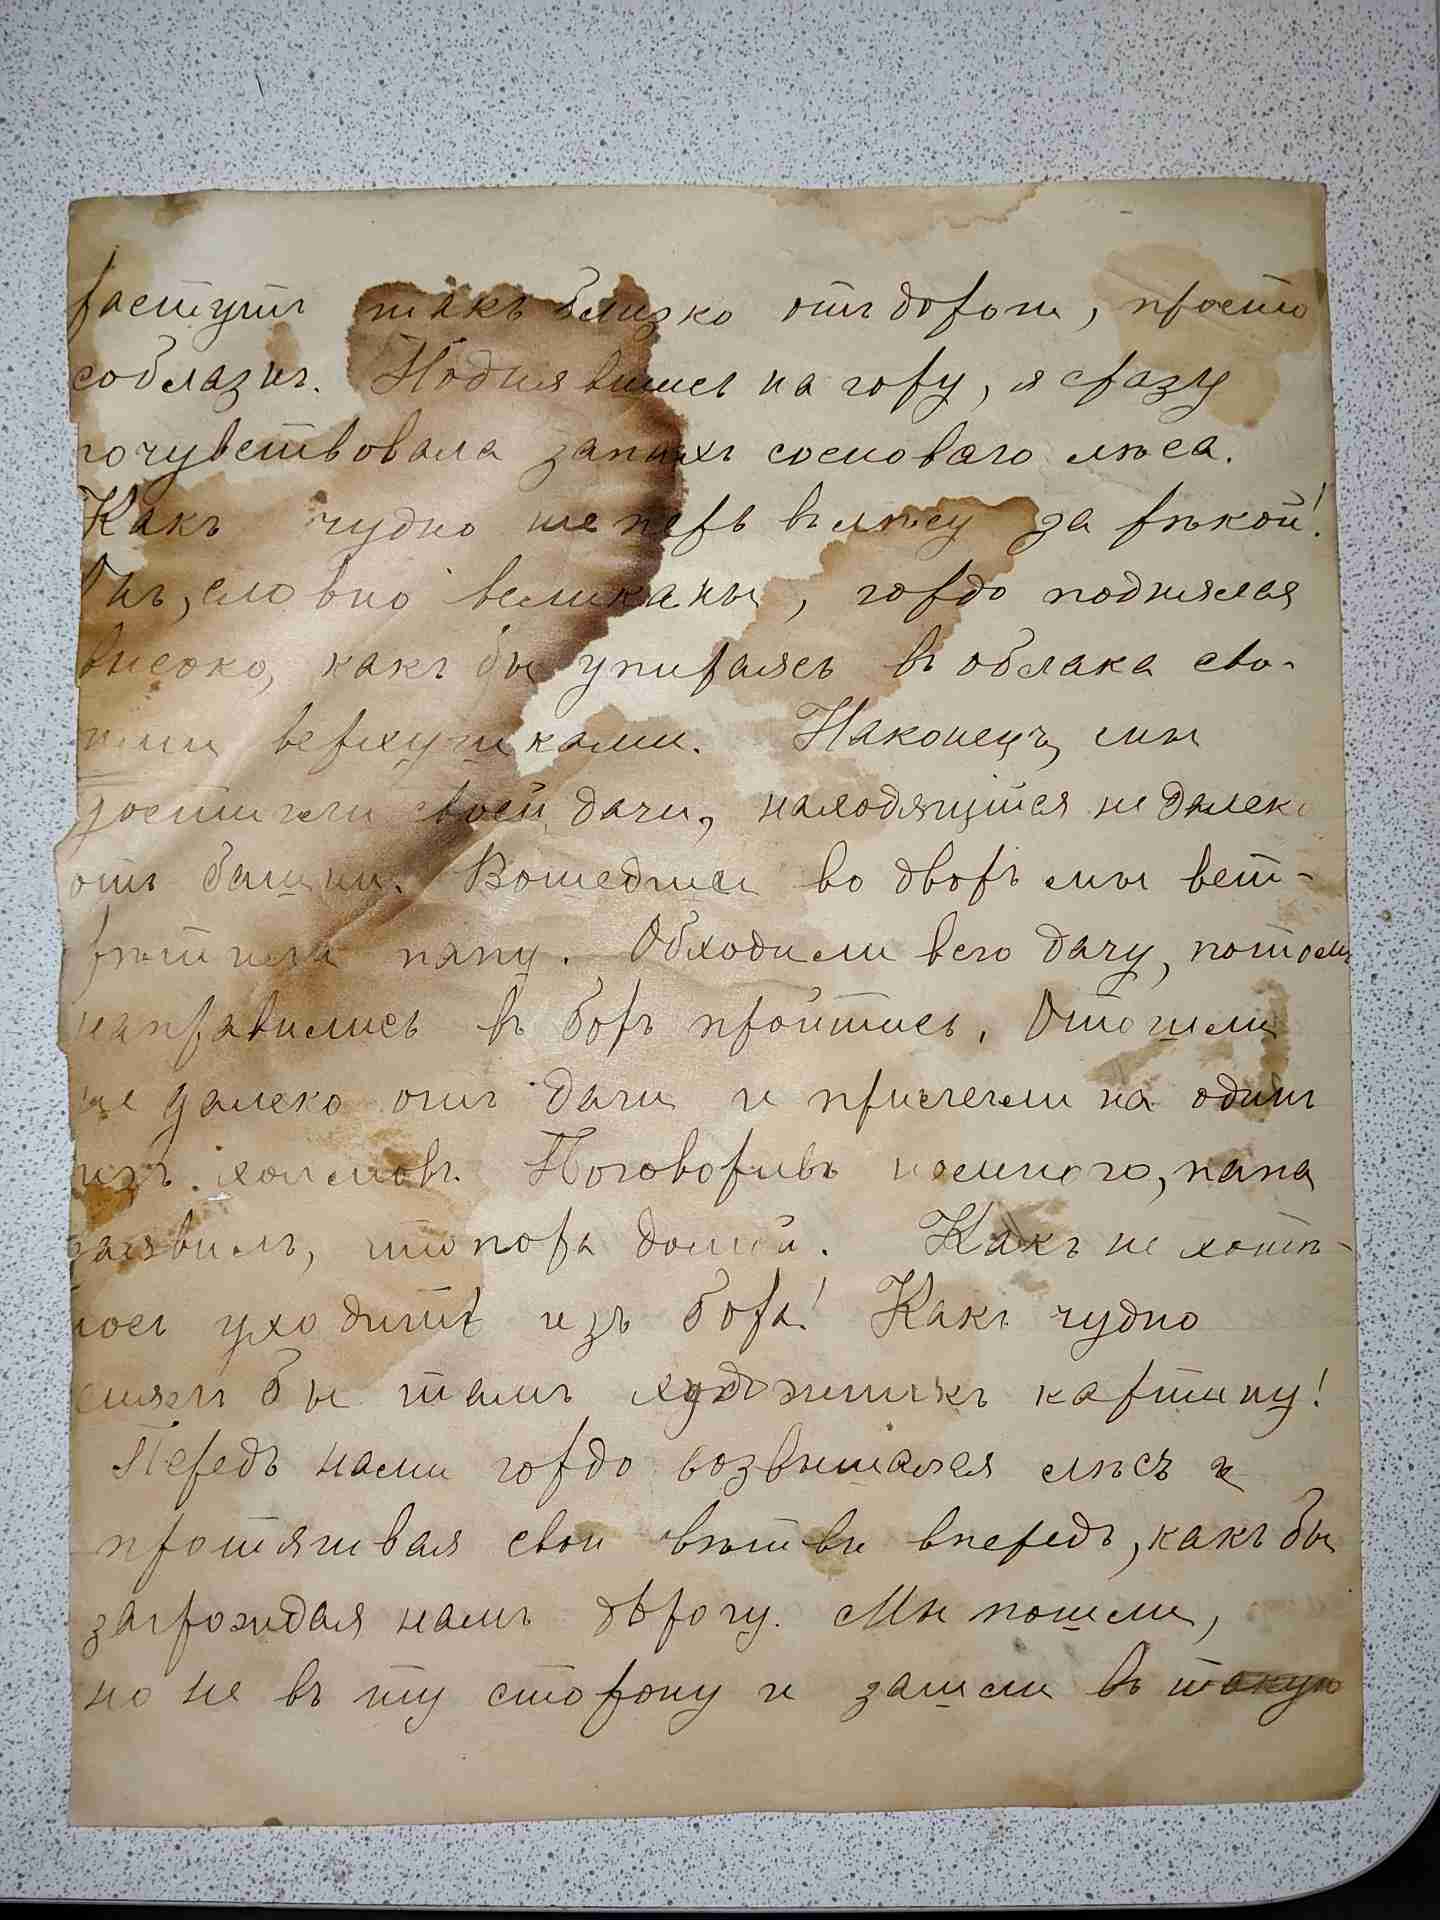 растутъ такъ близко отъ дороги, просто
соблазнъ. Поднявшись на гору, я сразу
почувствовала запахъ сосноваго лѣса.
Какъ чудно теперь въ лѣсу за рѣкой!
Онъ, словно великаны, гордо поднялся
высоко, какъ бы упираясь въ облака сво-
ими верхушками. Наконецъ, мы
достигли своей дачи, находящійся не далеко
отъ башни. Вошедши во дворъ мы вст-
рѣтили папу. Обходили всю дачу, потомъ
направились въ боръ пройтись. Отошли
не далеко отъ дачи и прилегли на одинъ
изъ холмовъ. Поговоривъ немного, папа
заявилъ, что пора домой. Какъ не хотѣ-
лось уходить изъ бора! Какъ чудно
снялъ бы тамъ художникъ картину!
Передъ нами гордо возвышался лѣсъ и
протягивая свои вѣтви впередъ, какъ бы
загрождая намъ дорогу. Мы пошли,
но не въ ту сторону и зашли въ такую